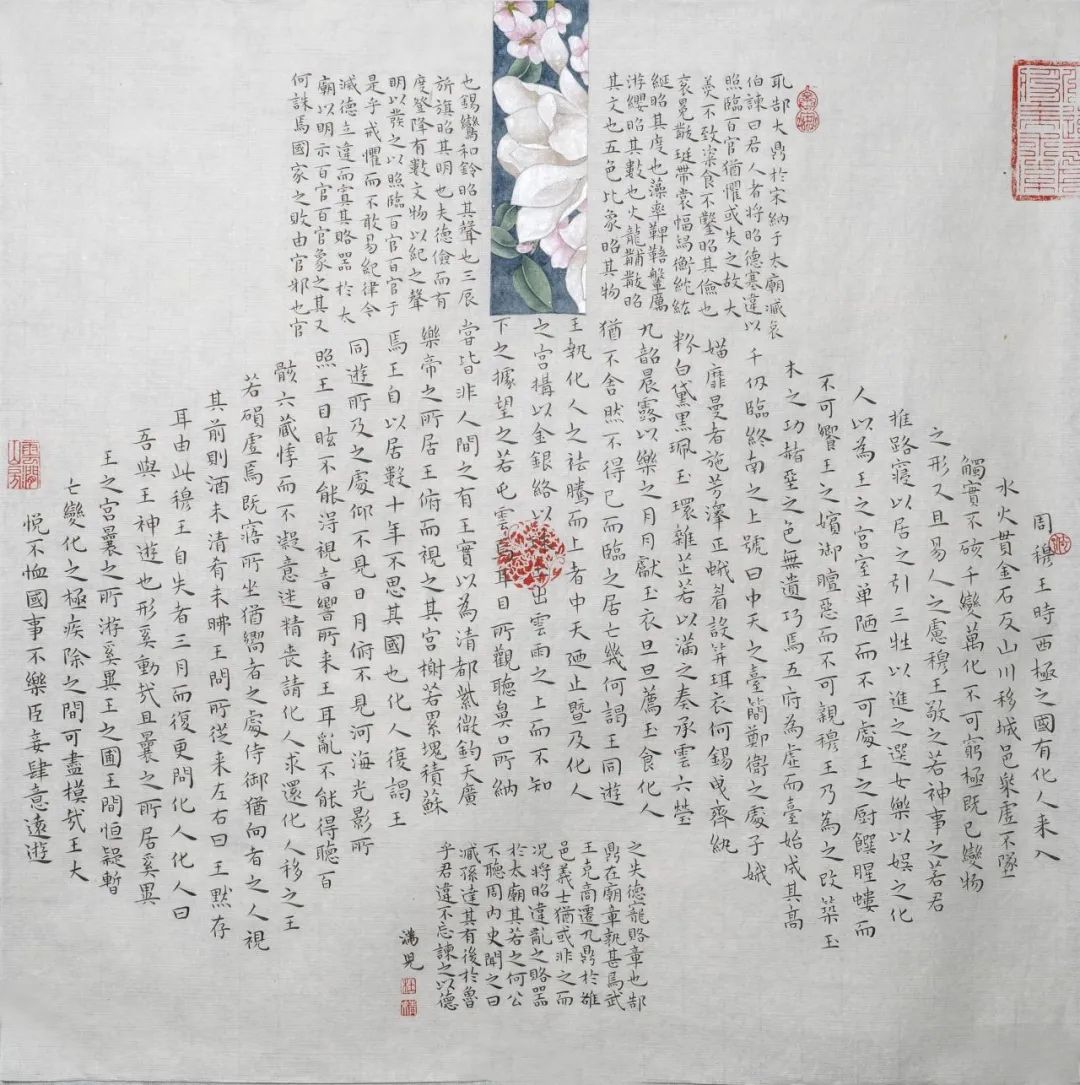 周穆王時西極之國有化人来入
水火貫金石反山川移城邑乘虛不墜
觸實不硋千變萬化不可窮極既已變物
之形又且易人之慮穆王敬之若神事之若君
推路寢以居之引三牲以進之選女樂以娱之化
人以為王之宮室卑陋而不可處王之厨饌腥螻而
不可饗王之嬪御膻惡而不可親穆王乃為之改築土
木之功赭堊之色無遺巧焉五府為虛而臺始成其高
千仞臨終南之上號曰中天之臺簡鄭衛之處子娥
媌靡曼者施芳澤正蛾眉設笄珥衣何錫曳齊紈
粉白黛黑珮玉環雜芷若以滿之奏承雲六瑩
九韶晨露以樂之月月獻玉衣旦旦薦玉食化人
猶不舍然不得已而臨之居亡幾何謁王同遊
王執化人之祛騰而上者中天迺止暨及化人
之宮構以金銀絡以出雲雨之上而不知
下之據望之若屯雲焉耳目所觀聽鼻口所納
嘗皆非人間之有王實以為清都紫微鈞天廣
樂帝之所居王俯而視之其宮榭若累塊積蘇
焉王自以居數十年不思其國也化人復謁王
同遊所及之處仰不見日月俯不見河海光影所
照王目眩不能得視音響所来王耳亂不能得聽百
骸六藏悸而不凝意迷精喪請化人求還化人移之王
若磒虛焉既寤所坐猶嚮者之處侍御猶向者之人視
其前則酒未清肴未昲王問所從来左右曰王默存
耳由此穆王自失者三月而復更問化人化人曰
吾與王神遊也形奚動哉且曩之所居奚異
王之宮曩之所游奚異王之圃王間恒疑暫
亡變化之極疾除之間可盡模哉王大
悦不恤國事不樂臣妾肆意遠遊
取郜大鼎於宋納于太廟臧哀
伯諫曰君人者将昭德塞違以
照臨百官猶懼或失之故大
羹不致粢食不鑿昭其儉也
袞冕黻珽帶裳幅舄衡紞紘
綖昭其度也藻率鞞鞛鞶厲
游纓昭其數也火龍黼黻昭
其文也五色比象昭其物
也錫鸞和鈴昭其聲也三辰
旂旗昭其明也夫德儉而有
度登降有數文物以紀之聲
明以發之以照臨百官百官于
是乎戒懼而不敢易紀律今
滅德立違而寘其賂器於太
廟以明示百官百官象之其又
何誅焉國家之敗由官邪也官
之失德寵賂章也郜
鼎在廟章孰甚焉武
王克商遷九鼎於雒
邑義士猶或非之而
况將昭違亂之賂器
於太廟其若之何公
不聽周内史聞之曰
臧孫達其有後於魯
乎君違不忘諫之以德